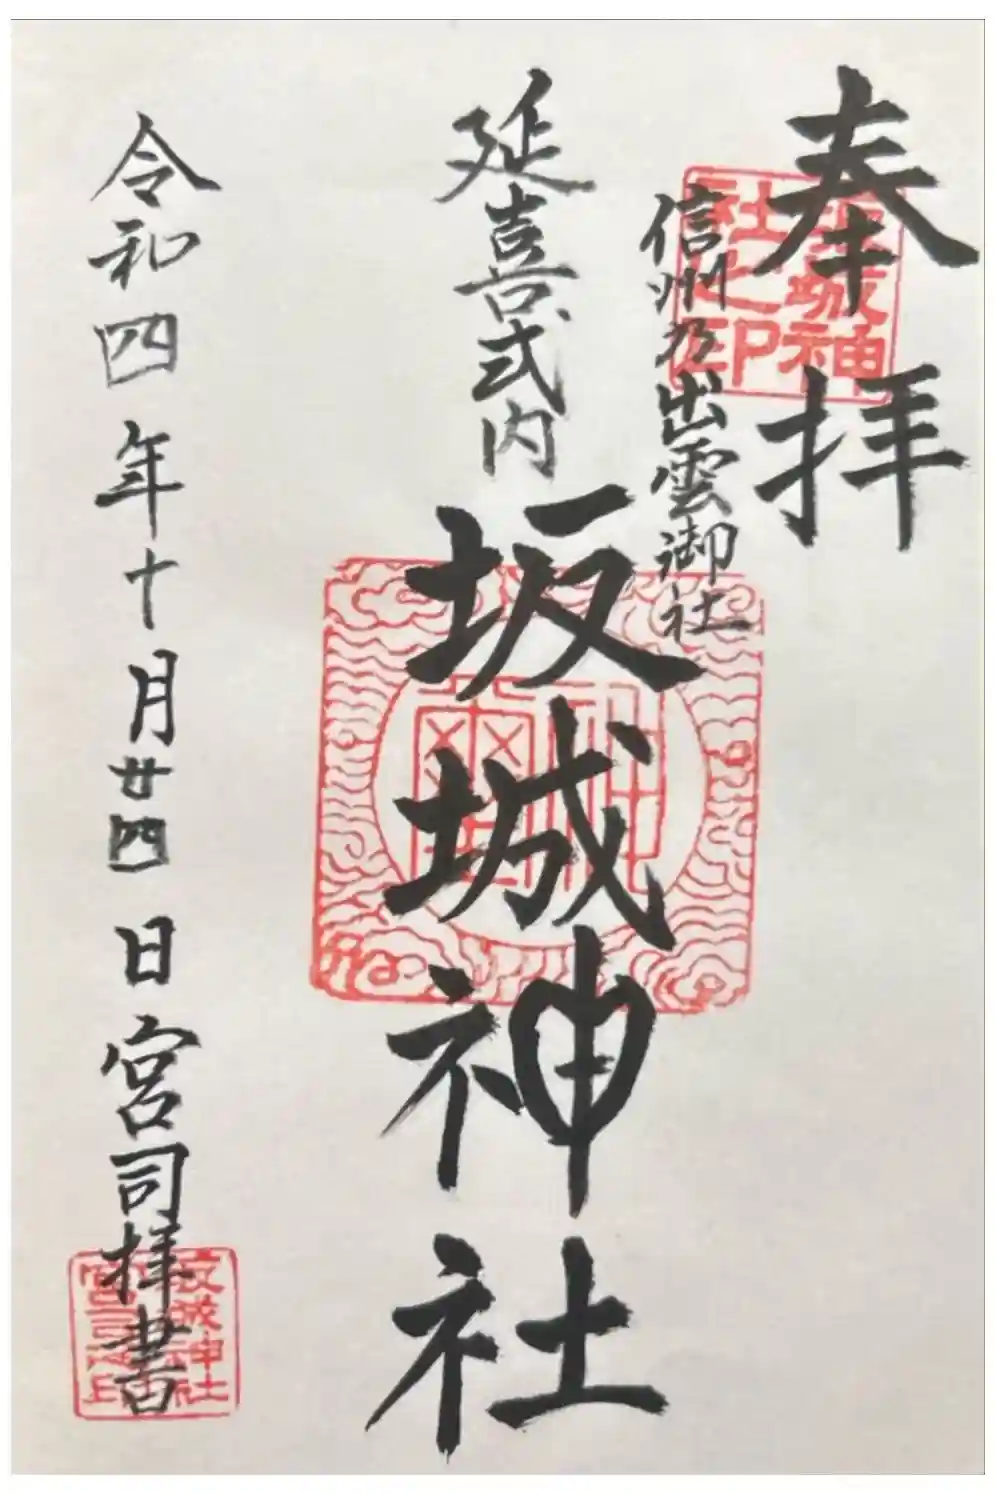 奉拝
信州乃出雲御社
延喜式内
坂城神社
令和四年十月廿四日宮司拝書
坂城神社之印
坂城神社宮司之印